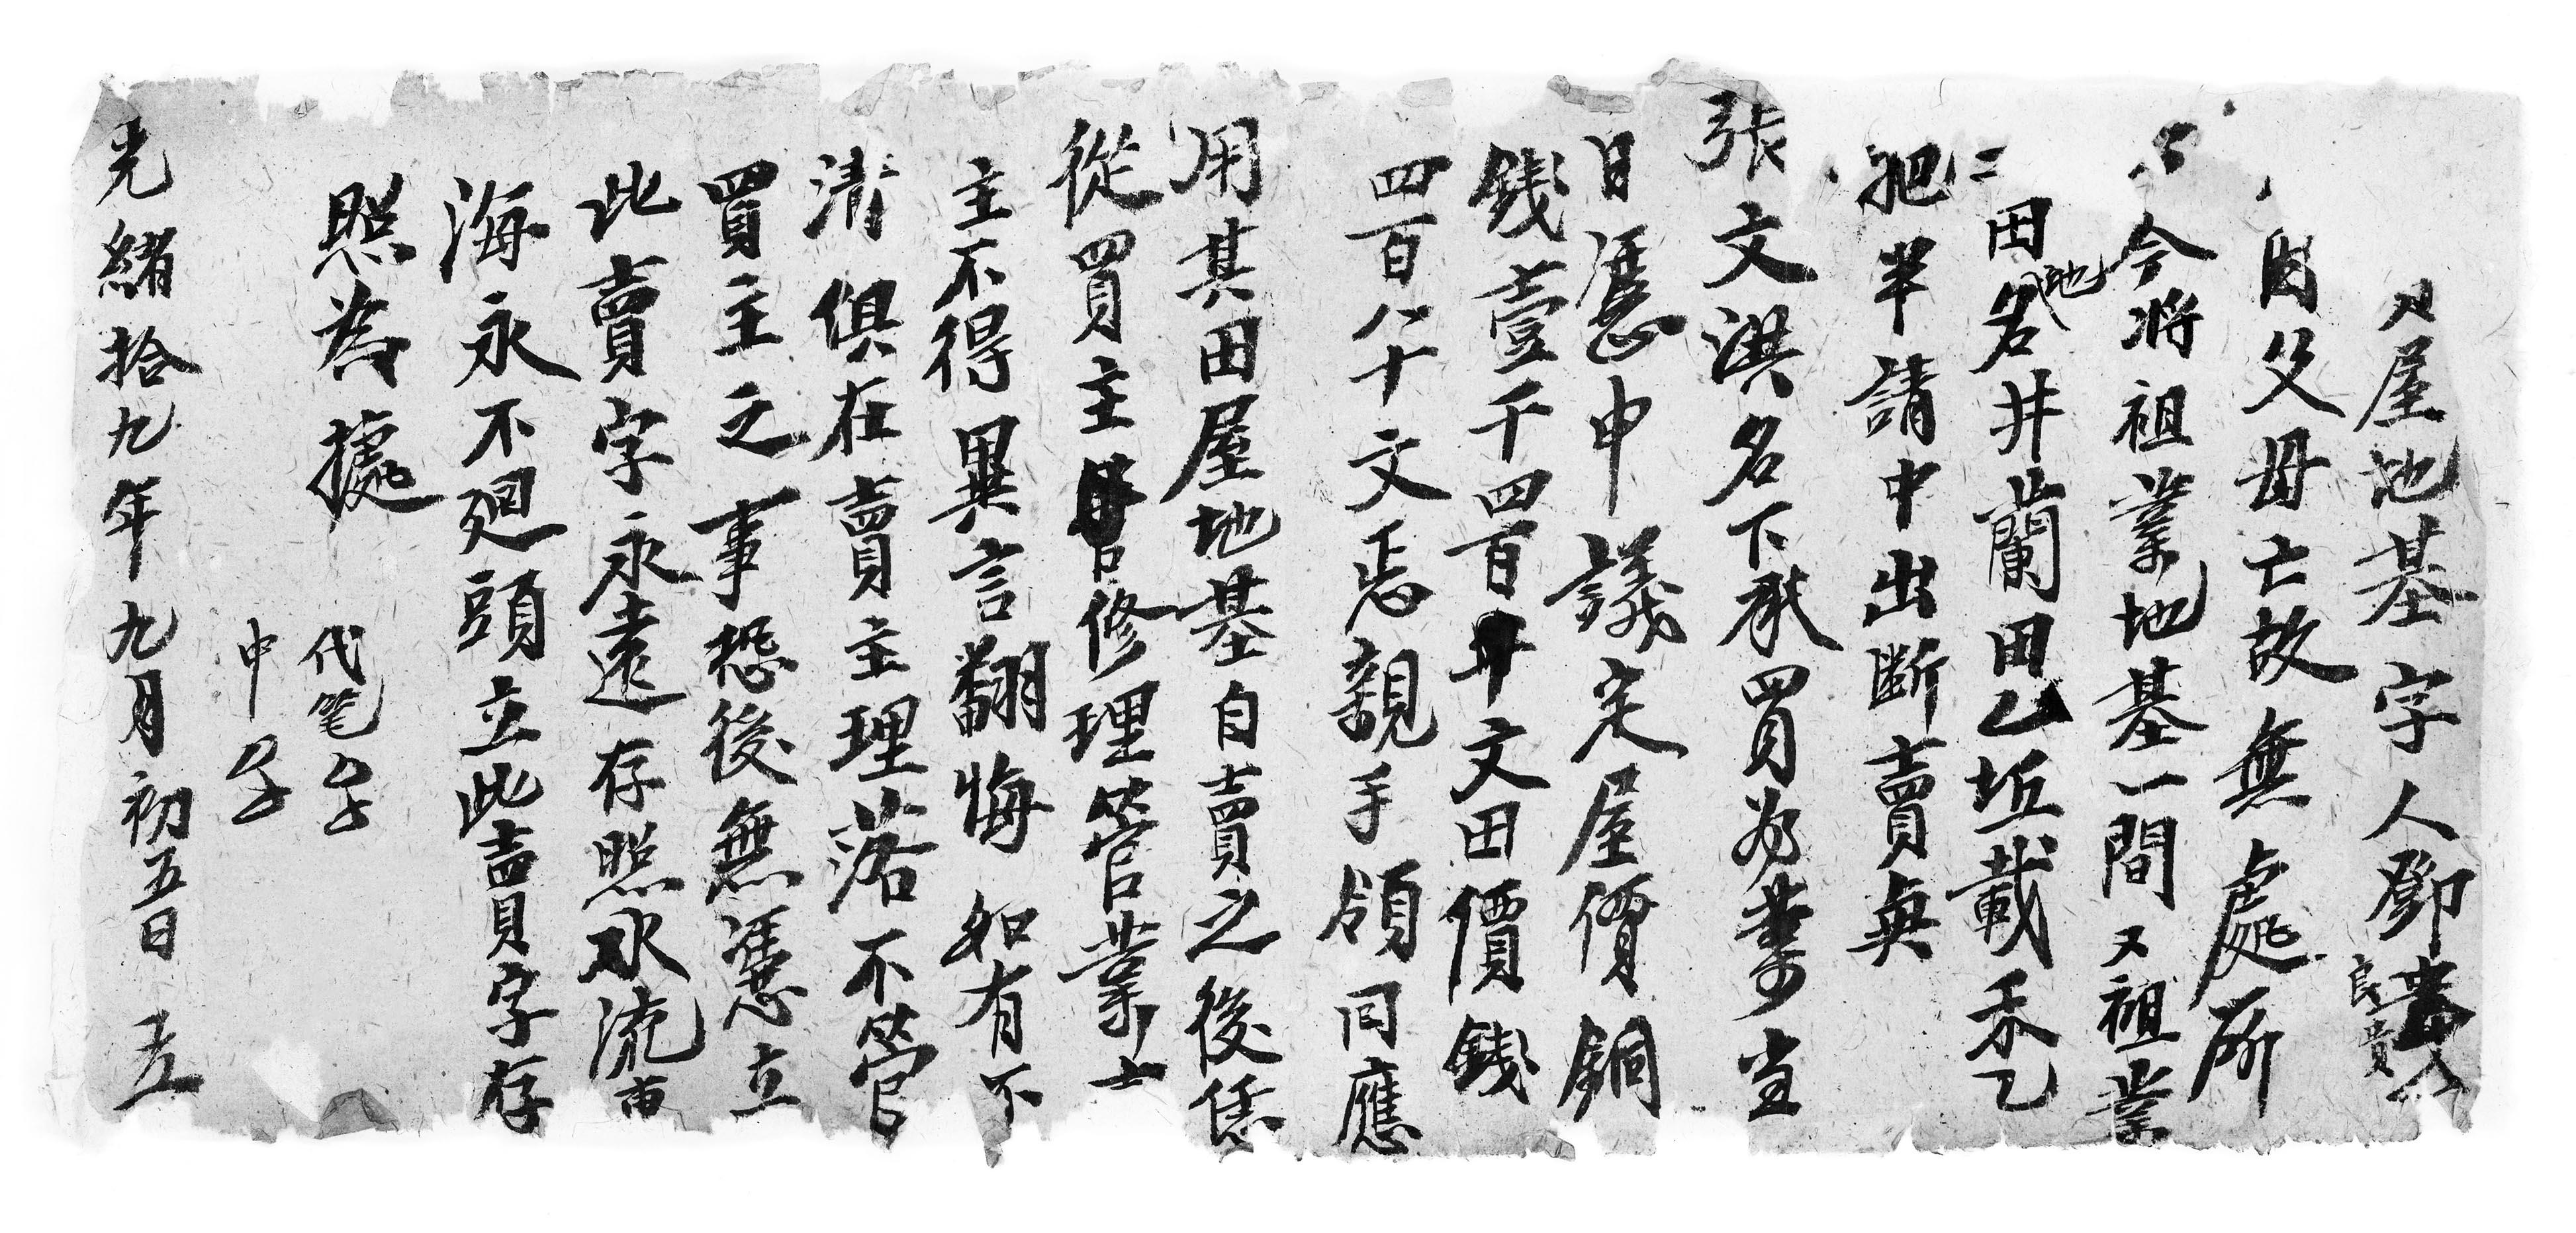 屋地基字人鄧良貴
因父母亡故無處所
今將祖業地基一間又祖業
田地名井蘭田乙坵載禾乙
把半請中出斷賣與
張文洪名下承買為業當
日憑中議定屋價銅
錢壹千四百文田價錢
四百八十文恁親手領同應
用其田屋地基自賣之後恁
從買主修理管業
主不得異言翻悔如有不
清俱在賣主理落不管
買主之事恐後無憑立
此賣字永遠存照水流
海永不廻頭立此賣字存
照為據
代笔
中
光緒拾九年九月初五日立